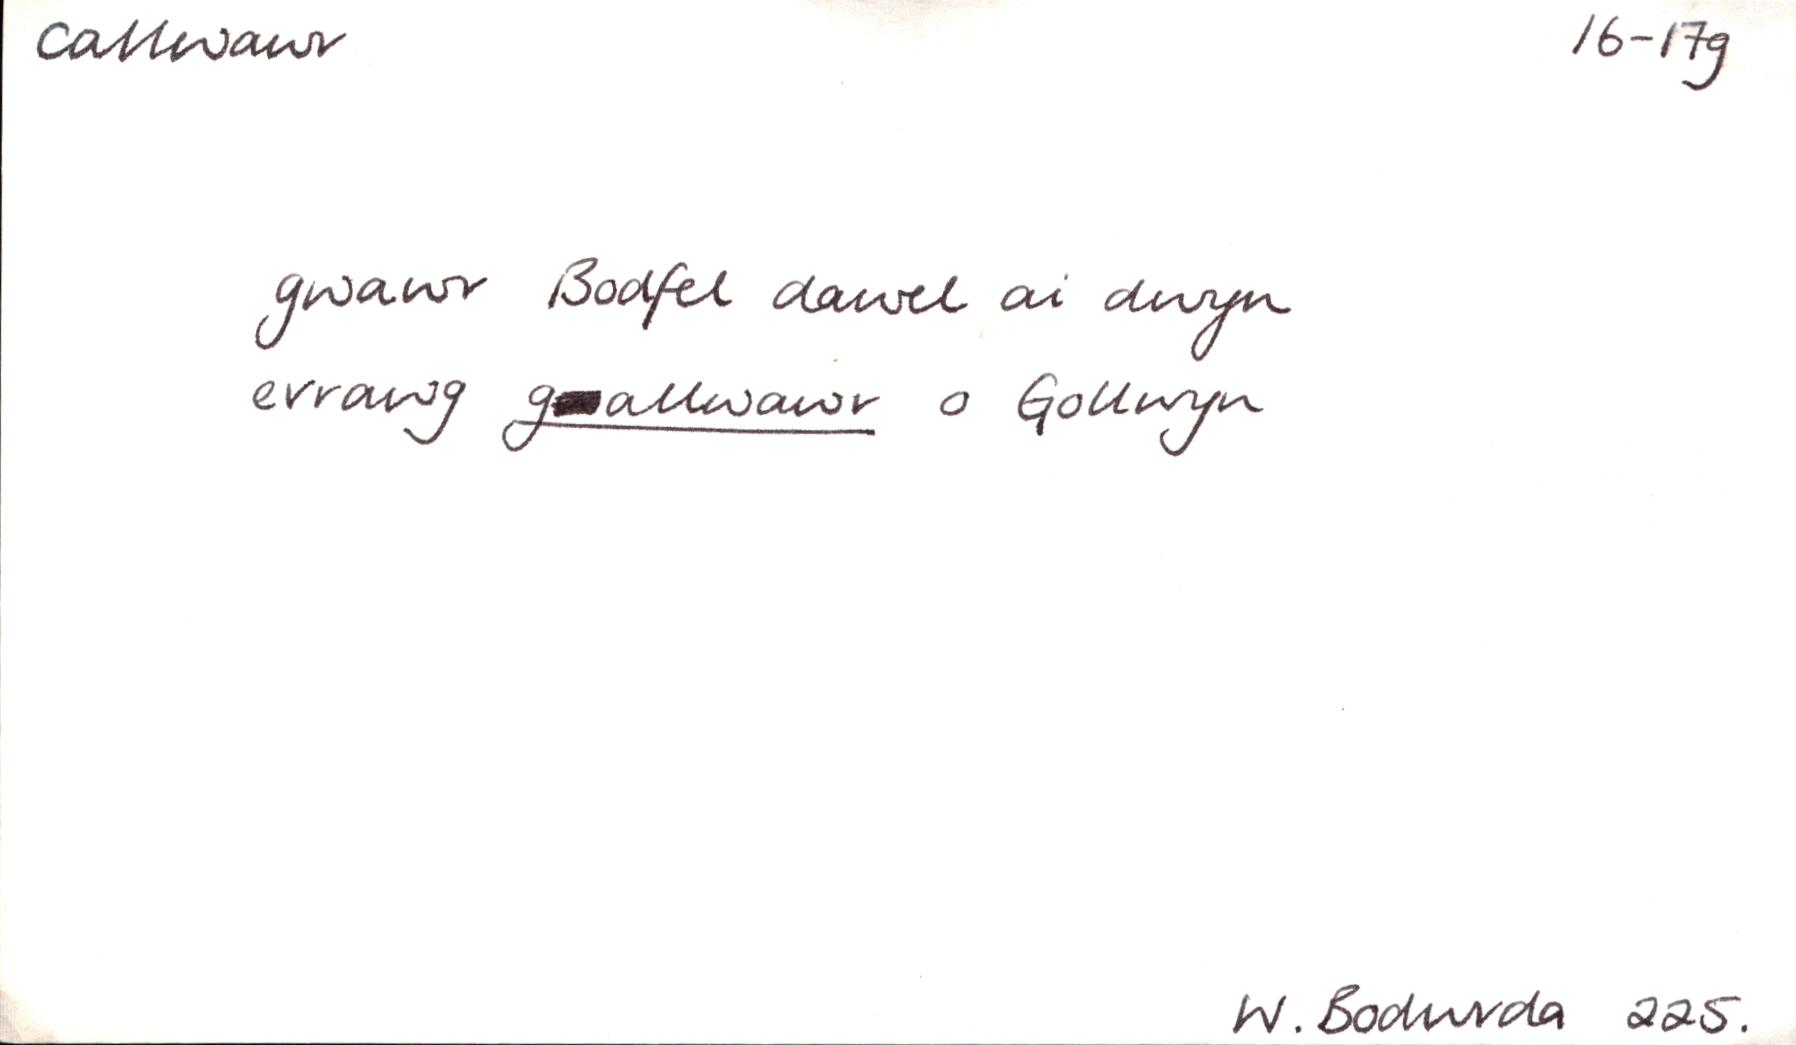 callwawr 16-17g
gwawr Bodfel dawel ai dwyn
evrawg gallwawr o Gollwyn
W. Bodwrda 225.